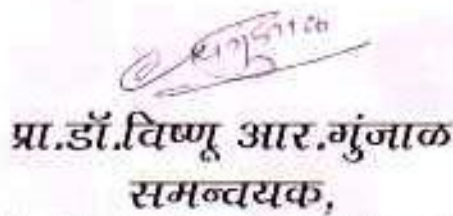 प्रा.डॉ.विष्णू आर.गुंजाळ
समन्वयक,